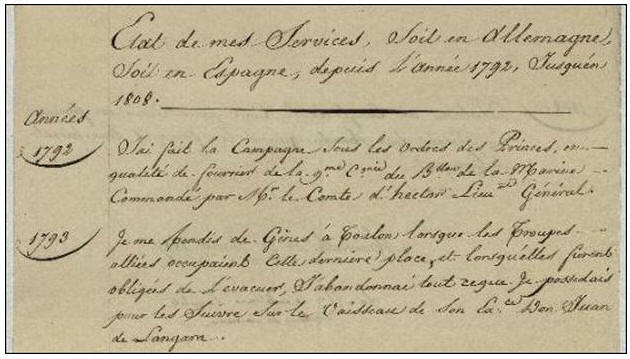 Etat de mes Services, Soit en Allemagne,
Soit en Espagne, depuis L'année 1792, Jusquén
1808.
Années
1792
J'ai fait la Campagne sous les ordres des Princes, en
qualité de fourrier de la 9me Cgnie du Btton de la Marine
Commandé par Mr le Comte d'hector Lieut Général.
1793
Je me Rendis de Gênes à Toulon lorsque les Troupes
alliées occupaient Cette dernière place, et lorsqu'elles furent
obligées de L'evacuer, J'abandonnai tout ceque Je possedais
pour les Suivre sur le Vaisseau de Son Ex.ce Don Juan
de Langara.